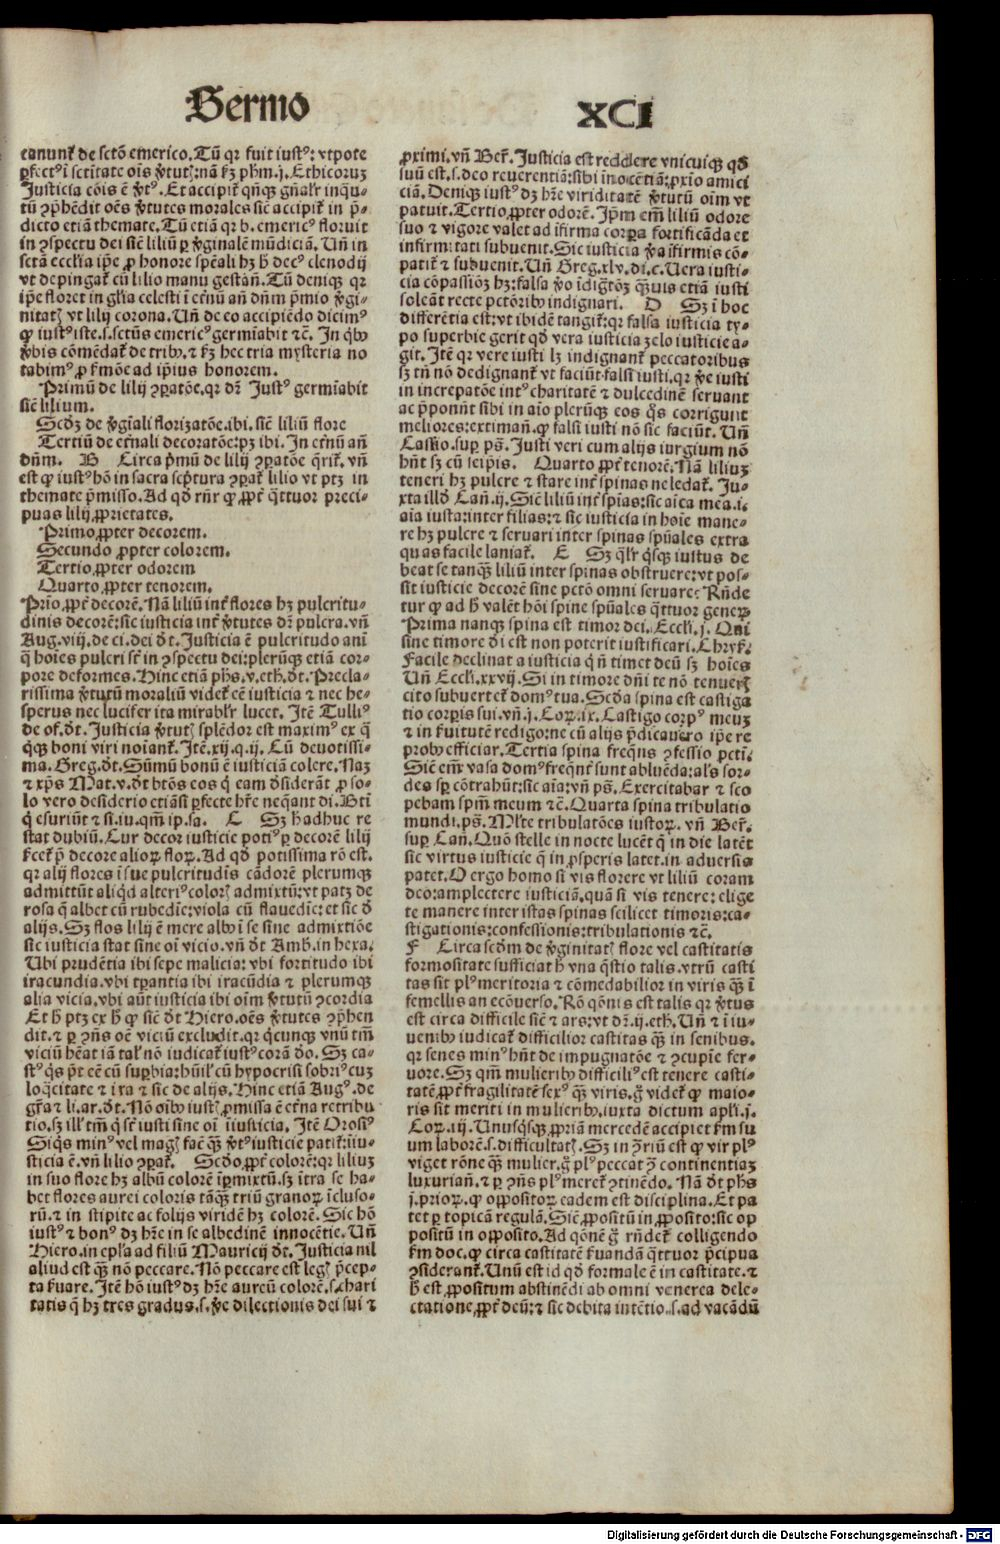 Sermo XCI
canunt᷑ de sctō emerico. Tū qꝛ fuit iustꝰ: vtpote
ꝑfectꝰ ī sctitate oīs v̓tutꝭ: nā ẜꝫ pħm .j. Ethicoruꝫ
Justicia cōis ē v̓tꝰ. Et accipit᷑ qn̄qꝫ gn̄alr̄ inqͣꝫ-
tū ꝯp̄hēdit oēs v̓tutes morales sic̄ accipit᷑ in p̄-
dicto etiā themate. Tū etiā qꝛ b. emericꝰ floruit
in ꝯspectu dei sic̄ liliū ꝑ v̓ginalē mūdiciā. Un̄ in
sctā ecclīa ip̄e ꝓ honore spēali hꝫ h̄ decꝰ clenodij
vt depingat᷑ cū lilio manu gestān̄. Tū deniqꝫ qꝛ
ip̄e floret in gl̄ia celesti ī et̓nū an̄ dn̄m p̄mio v̓gi-
nitatꝭ vt lilij corona. Un̄ de eo accipiēdo dicimꝰ
ꝙ iustꝰ iste .s. sctūs emericꝰ germīabit ⁊c̄. In qͥbꝰ
v̓bis cōmēdat᷑ de tribꝰ. ⁊ ẜꝫ hec tria mysteria no
tabimꝰ ꝓ ẜmōe ad ip̄ius honorem.
Primū de lilij ꝯꝑatōe. qꝛ dr̄ Justꝰ germīabit
sic̄ lilium.
Scd̓ꝫ de v̓gīali florizatōe. ibi. sic̄ liliū flore
Tertiū de et̓nali decoratōe: pꝫ ibi. In et̓nū an̄
dn̄m. B Circa p̓mū de lilij ꝯꝑatōe q̄rit᷑. vn̄
est ꝙ iustꝰ hō in sacra sc̓ptura ꝯꝑat᷑ lilio vt ptꝫ in
themate p̄misso. Ad qd̓ rn̄r ꝙ ꝓpt̓ qͣttuor preci-
puas lilij ꝓprietates.
Primo ꝓpter decorem.
Secundo ꝓpter colorem.
Tertio ꝓpter odorem
Quarto ꝓpter tenorem.
Prīo ꝓpt̓ decorē. Nā liliū int̓ flores hꝫ pulcritu-
dinis decorē: sic iusticia int̓ v̓tutes dr̄ pulcra. vn̄
Aug. viij. de ci. dei d̓t. Justicia ē pulcritudo anī
q̄ hoīes pulcri sūt in ꝯspectu dei: plerūqꝫ etiā cor-
pore deformes. Hinc etiā phs. v. eth. d̓t. Precla-
rissima v̓tutū moraliū videt᷑ eē iusticia ⁊ nec he-
sperus nec lucifer ita mirabilr̄ lucet. Itē Tulliꝰ
de of. d̓t. Justicia v̓tutꝭ splēdor est maximꝰ ex q̄
qͥqꝫ boni viri noīant᷑. Itē .xij. q. ij. Cū deuotissi-
ma. Greg. d̓t. Sūmū bonū ē iusticiā colere. Naꝫ
⁊ xp̄s Mat. v. dt btōs eos q̄ eam d̓siderāt ꝓ so-
lo vero desiderio etiāsi ꝑfecte hr̄e neq̄ant di. Bt̄i
q̄ esuriūt ⁊ si. iu. qm̄ ip. sa. C Sꝫ h̄ adhuc re
stat dubiū. Cur decor iusticie potiꝰ ꝑ decorē lilij
ẜcet᷑ p̄ decore alioꝝ floꝝ. Ad qd̓ potissima rō est.
qꝛ alij flores ī sue pulcritudīs cādorē plerumqꝫ
admittūt aliqd̓ alteriꝰ colorꝭ admixtū: vt patꝫ de
rosa q̄ albet cū rubedīe: viola cū flauedīe: et sic d̓
alijs. Sꝫ flos lilij ē mere albꝰ ī se sine admixtiōe
sic iusticia stat sine oī vicio. vn̄ d̓t Amb. in hexa.
Ubi prudētia ibi sepe malicia: vbi fortitudo ibi
iracundia. vbi tꝑantia ibi iracūdia ⁊ plerumqꝫ
alia vicia. vbi aūt iusticia ibi oīm v̓tutū ꝯcordia
Et h̄ ptꝫ ex h̄ ꝙ sic̄ d̓t Hiero. oēs v̓tutes ꝯp̄hen
dit. ⁊ ꝑ ꝯn̄s oē viciū excludit. qꝛ qͥcunqꝫ vnū tm̄
viciū hēat iā tal̓ nō iudicat᷑ iustꝰ corā d̓o. Sꝫ ca-
stꝰ q̓s pt̄ eē cū suꝑbia: hūil̓ cū hypocrisi sobriꝰ cuꝫ
loq̄citate ⁊ ira ⁊ sic de alijs. Hinc etiā Augꝰ. de
gr̄a ⁊ li. ar. d̓t. Nō oībꝰ iustꝭ ꝓmissa ē et̓na retribu
tio. sꝫ ill̓ tm̄ q̄ sūt iusti sine oī iīusticia. Itē Orosiꝰ
Siqͥs minꝰ vel magꝭ faē qͣꝫ v̓tꝰ iusticie patit᷑: iīu-
sticia ē. vn̄ lilio ꝯꝑat᷑. Scd̓o. ꝓpt̓ colorē: qꝛ liliuꝫ
in suo flore hꝫ albū colorē īꝑmixtū. sꝫ ītra se ha-
bet flores aurei coloris tāqͣꝫ triū granoꝝ īcluso-
rū. ⁊ in stipite ac folijs viridē hꝫ colorē. Sic hō
iustꝰ ⁊ bonꝰ dꝫ hr̄e in se albedinē innocētie. Un̄
Hiero. in epl̄a ad filiū Mauricij d̓t. Justicia nil
aliud est qͣꝫ nō peccare. Nō peccare est legꝭ p̄cep-
ta ẜuare. Itē hō iustꝰ dꝫ hr̄e aureū colorē. s. chari
tatis q̄ hꝫ tres gradus. s. v̓e dilectionis dei sui ⁊
ꝓximi. vn̄ Ber̄. Justicia est reddere vnicuiqꝫ qd̓
suū est. s. deo reuerentiā: sibi inocētiā: ꝓxīo amici
ciā. Deniqꝫ iustꝰ dꝫ hr̄e viriditatē v̓tutū oīm vt
patuit. Tertio ꝓpter odorē. Ip̄m em̄ liliū odore
suo ⁊ vigore valet ad īfirma corꝑa fortificāda et
infirmitati subuenit. Sic iusticia v̓a īfirmis cō-
patit᷑ ⁊ subuenit. Un̄ Greg. xlv. di. c. Uera iusti-
cia cōpassiōꝫ hꝫ: falsa v̓o īdigtōꝫ qͣꝫuis etiā iusti
soleāt recte pctōribꝰ indignari. D Sꝫ ī hoc
differētia est: vt ibidē tangit᷑: qꝛ falsa iusticia ty-
po superbie gerit qd̓ vera iusticia zelo iusticie a-
git. Itē qꝛ vere iusti lꝫ indignant᷑ peccatoribus
sꝫ tn̄ nō dedignant᷑ vt faciūt falsi iusti. qꝛ v̓e iusti
in increpatōe intꝰ charitatē ⁊ dulcedinē seruant
ac p̄ponūt sibi in aīo plerūqꝫ eos q̓s corrigunt
meliores: extimān̄. ꝙ falsi iusti nō sic faciūt. Un̄
Cassio. suꝑ ps̄. Justi veri cum alijs iurgium nō
hn̄t sꝫ cū seip̄is. Quarto ꝓpt̓ tenorē. Nā liliuꝫ
teneri hꝫ pulcre ⁊ stare int̓ spinas ne ledat᷑. Ju-
xta illd̓ Can̄. ij. Sic̄ liliū int̓ spīas: sic aīca mea. i.
aīa iusta: inter filias: ⁊ sic iusticia in hoīe mane-
re hꝫ pulcre ⁊ seruari inter spinas spūales extra
quas facile laniat᷑. E Sꝫ qͣlr̄ q̓sqꝫ iustus de
beat se tanqͣꝫ liliū inter spinas obstruere: vt pos-
sit iusticie decorē sine pctō omni seruare: Rn̄de
tur ꝙ ad h̄ valēt hōi spine spūales qͣttuor generꝭ
Prima nanqꝫ spina est timor dei. Eccli. j. Qui
sine timore d̓i est non poterit iustificari. Chrys̄.
Facile declinat a iusticia q̄ n̄ timet deū sꝫ hoīes
Un̄ Eccli. xxvij. Si in timore dn̄i te nō tenuerꝭ
cito subuertet᷑ domꝰ tua. Scd̓a spina est castiga
tio corꝑis sui. vn̄. j. Coꝝ. ix. Castigo corpꝰ meuꝫ
⁊ in ẜuitutē redigo: ne cū alijs p̄dicauero ip̄e re
probꝰ efficiar. Tertia spina freqn̄s ꝯfessio pctī.
Sic̄ em̄ vasa domꝰ freqn̄t̓ sunt abluēda: al̓s sor-
des sꝑ cōtrahūt: sic aīa: vn̄ ps̄. Exercitabar ⁊ sco
pebam spm̄ meum ⁊c̄. Quarta spina tribulatio
mundi. ps̄. Ml̓te tribulatōes iustoꝝ. vn̄ Ber̄.
suꝑ Can̄. Quō stelle in nocte lucēt q̄ in die latēt
sic virtus iusticie q̄ in ꝓsperis latet. in aduersis
patet. O ergo homo si vis florere vt liliū coram
deo: amplectere iusticiā. quā si vis tenere: elige
te manere inter istas spinas scilicet timoris: ca-
stigationis: confessionis: tribulationis ⁊c̄.
F Circa scd̓m de v̓ginitatꝭ flore vel castitatis
formositate sufficiat h̄ vna q̄stio talis. vtrū casti
tas sit plꝰ meritoria ⁊ cōmedabilior in viris qͣꝫ ī
femellis an ecōuerso. Rō qōnis est talis qꝛ v̓tus
est circa difficile sic̄ ⁊ ars: vt dr̄ .ij. eth. Un̄ ⁊ ī iu-
uenibꝰ iudicat᷑ difficilior castitas qͣꝫ in senibus.
qꝛ senes minꝰ hn̄t de impugnatōe ⁊ ꝯcupīe fer-
uore. Sꝫ qm̄ mulieribꝰ difficiliꝰ est tenere casti-
tatē ꝓpt̓ fragilitatē sexꝰ qͣꝫ viris. g̊ videt᷑ ꝙ maio-
ris sit meriti in mulieribꝰ. iuxta dictum apl̄i. j.
Coꝝ. iij. Unusqͥsqꝫ ꝓpriā mercedē accipiet ẜm su
um laborē. s. difficultatꝭ. Sꝫ in ꝯriū est ꝙ vir plꝰ
viget rōne qͣꝫ mulier. g̊ plꝰ peccat ꝯ̄ continentiaꝫ
luxuriān̄. ⁊ ꝑ ꝯn̄s plꝰ meret᷑ ꝯtinēdo. Nā d̓t phs
j. prioꝝ. ꝙ oppositoꝝ eadem est disciplina. Et pa
tet ꝑ topicā regulā. Sic̄ ꝓpositū in ꝓposito: sic op
positū in opposito. Ad qōnē g̊ rn̄det᷑ colligendo
ẜm doc. ꝙ circa castitatē ẜuandā qͣttuor p̄cipua
ꝯsiderant᷑. Unū est id qd̓ formale ē in castitate. ⁊
h̄ est ꝓpositum abstinēdi ab omni venerea dele-
ctatione ꝓpt̓ deū: ⁊ sic debita intētio. s. ad vacādū
Digitalisierung gefördert durch die Deutsche Forschungsgemeinschaft - DFG